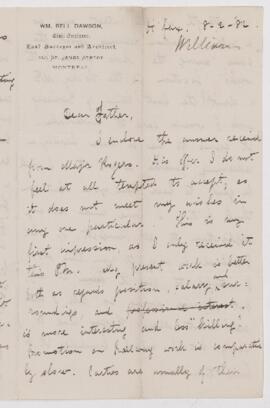 WM. BELL DAWSON,
Civil Engineer,
Land Surveyor and Architect,
ST. JAMES STREET
MONTREAL
8-2-82
William
Dear Father,
I enclose the answer received
from Major Rogers. His offer I do not
feel at all tempted to accept, as
it does not meet my wishes in
any one particular. This is my
first impression as I only received it
this P.m. My present work is better
both as regards position, salary, and sur-
roundings, and professional interest.
is more interesting and less "killing."
Promotion on Railway work is comparative-
ly slow. Parties are usually of